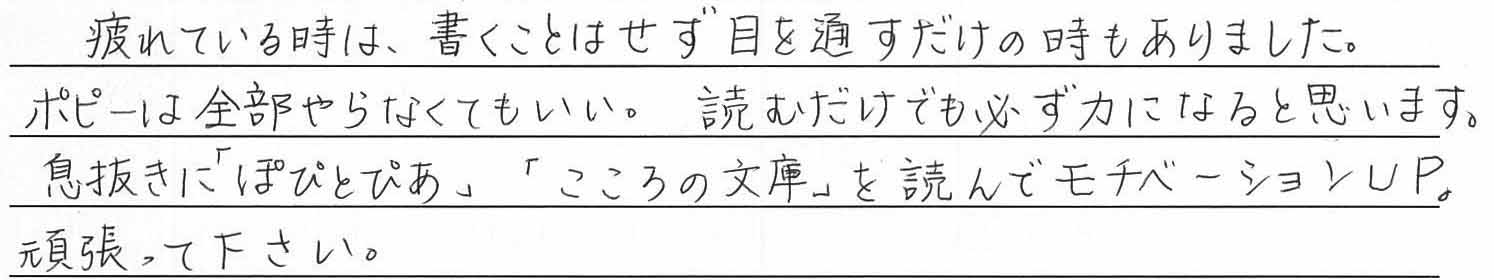 疲れている時は、書くことはせず目を通すだけの時もありました。
ポピーは全部やらなくてもいい。 読むだけでも必ず力になると思います。
息抜きに「ぽぴとぴあ」「こころの文庫」を読んでモチベーションUP。
頑張って下さい。